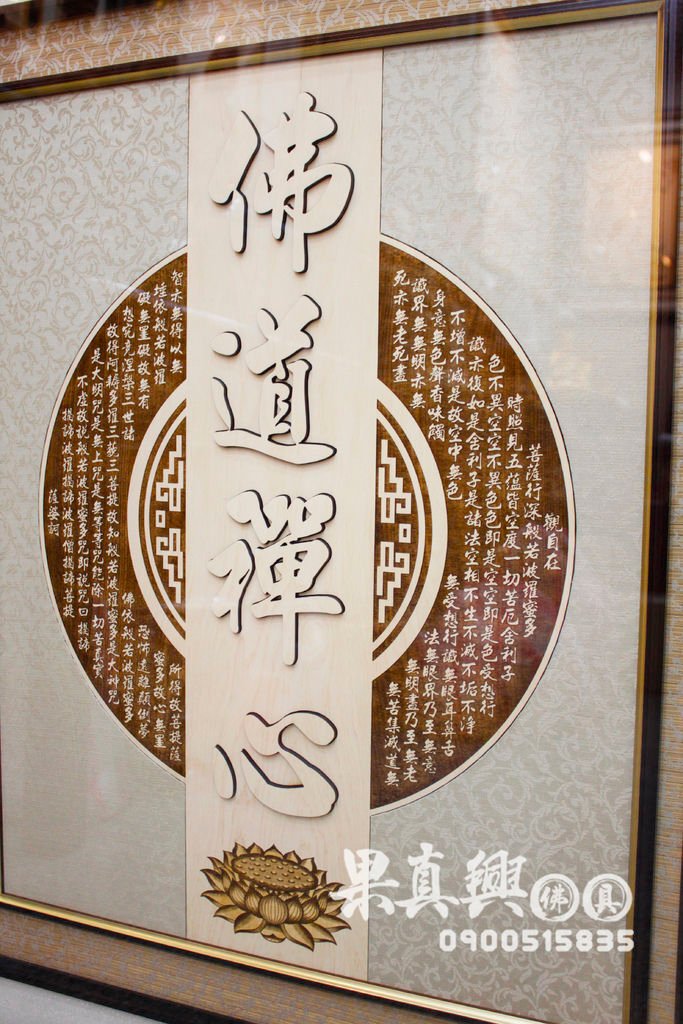 佛道禪心
觀自在
菩薩行深般若波羅蜜多
時照見五蘊皆空度一切苦厄舍利子
色不異空空不異色色即是空空即是色受想行
識亦復如是舍利子是諸法空相不生不滅不垢不淨
不增不減是故空中無色
無受想行識無眼耳鼻舌
身意無色聲香味觸
法無眼界乃至無意
識界無無明亦無
無明盡乃至無老
死亦無老死盡
無苦集滅道無
智亦無得以無
所得故菩提薩
埵依般若波羅
蜜多故心無罣
礙無罣礙故無有
恐怖遠離顛倒夢
想究竟涅槃三世諸
佛依般若波羅蜜多
故得阿耨多羅三藐三菩提故知般若波羅蜜多是大神咒
是大明咒是無上咒是無等等咒能除一切苦真實
不虛故說般若波羅蜜多咒即說咒曰揭諦
揭諦波羅揭諦波羅僧揭諦菩提
薩婆訶
果真興佛具
0900515835